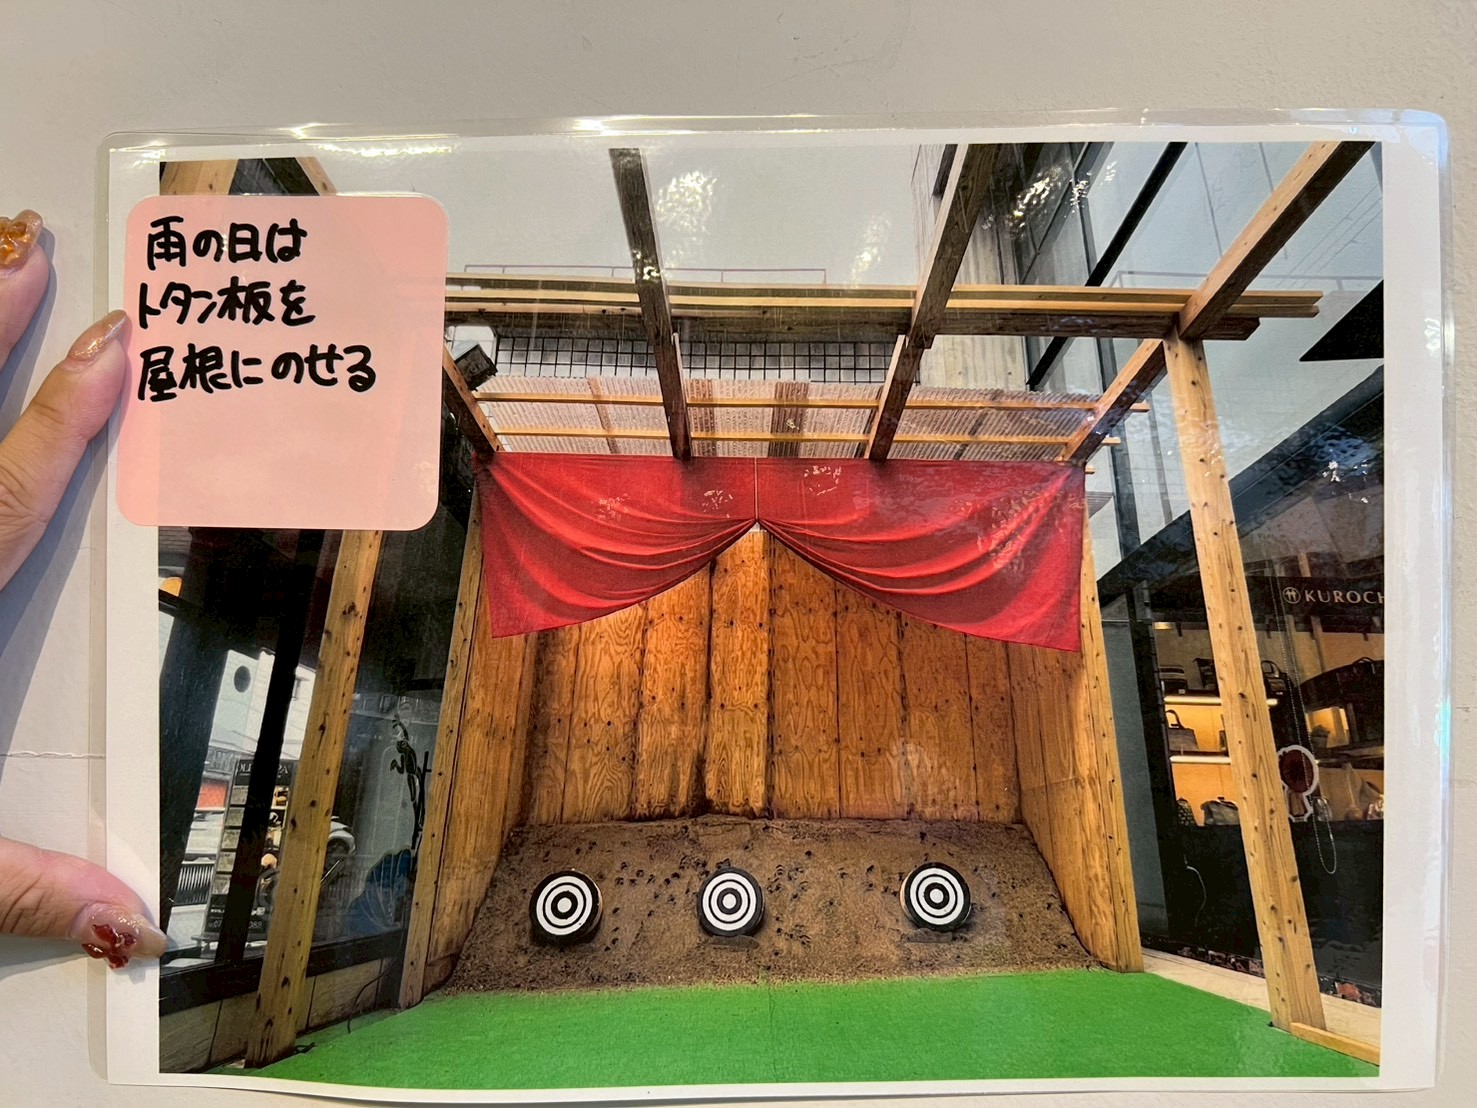 雨の日は
トタン板を
屋根にのせる
KUROCH